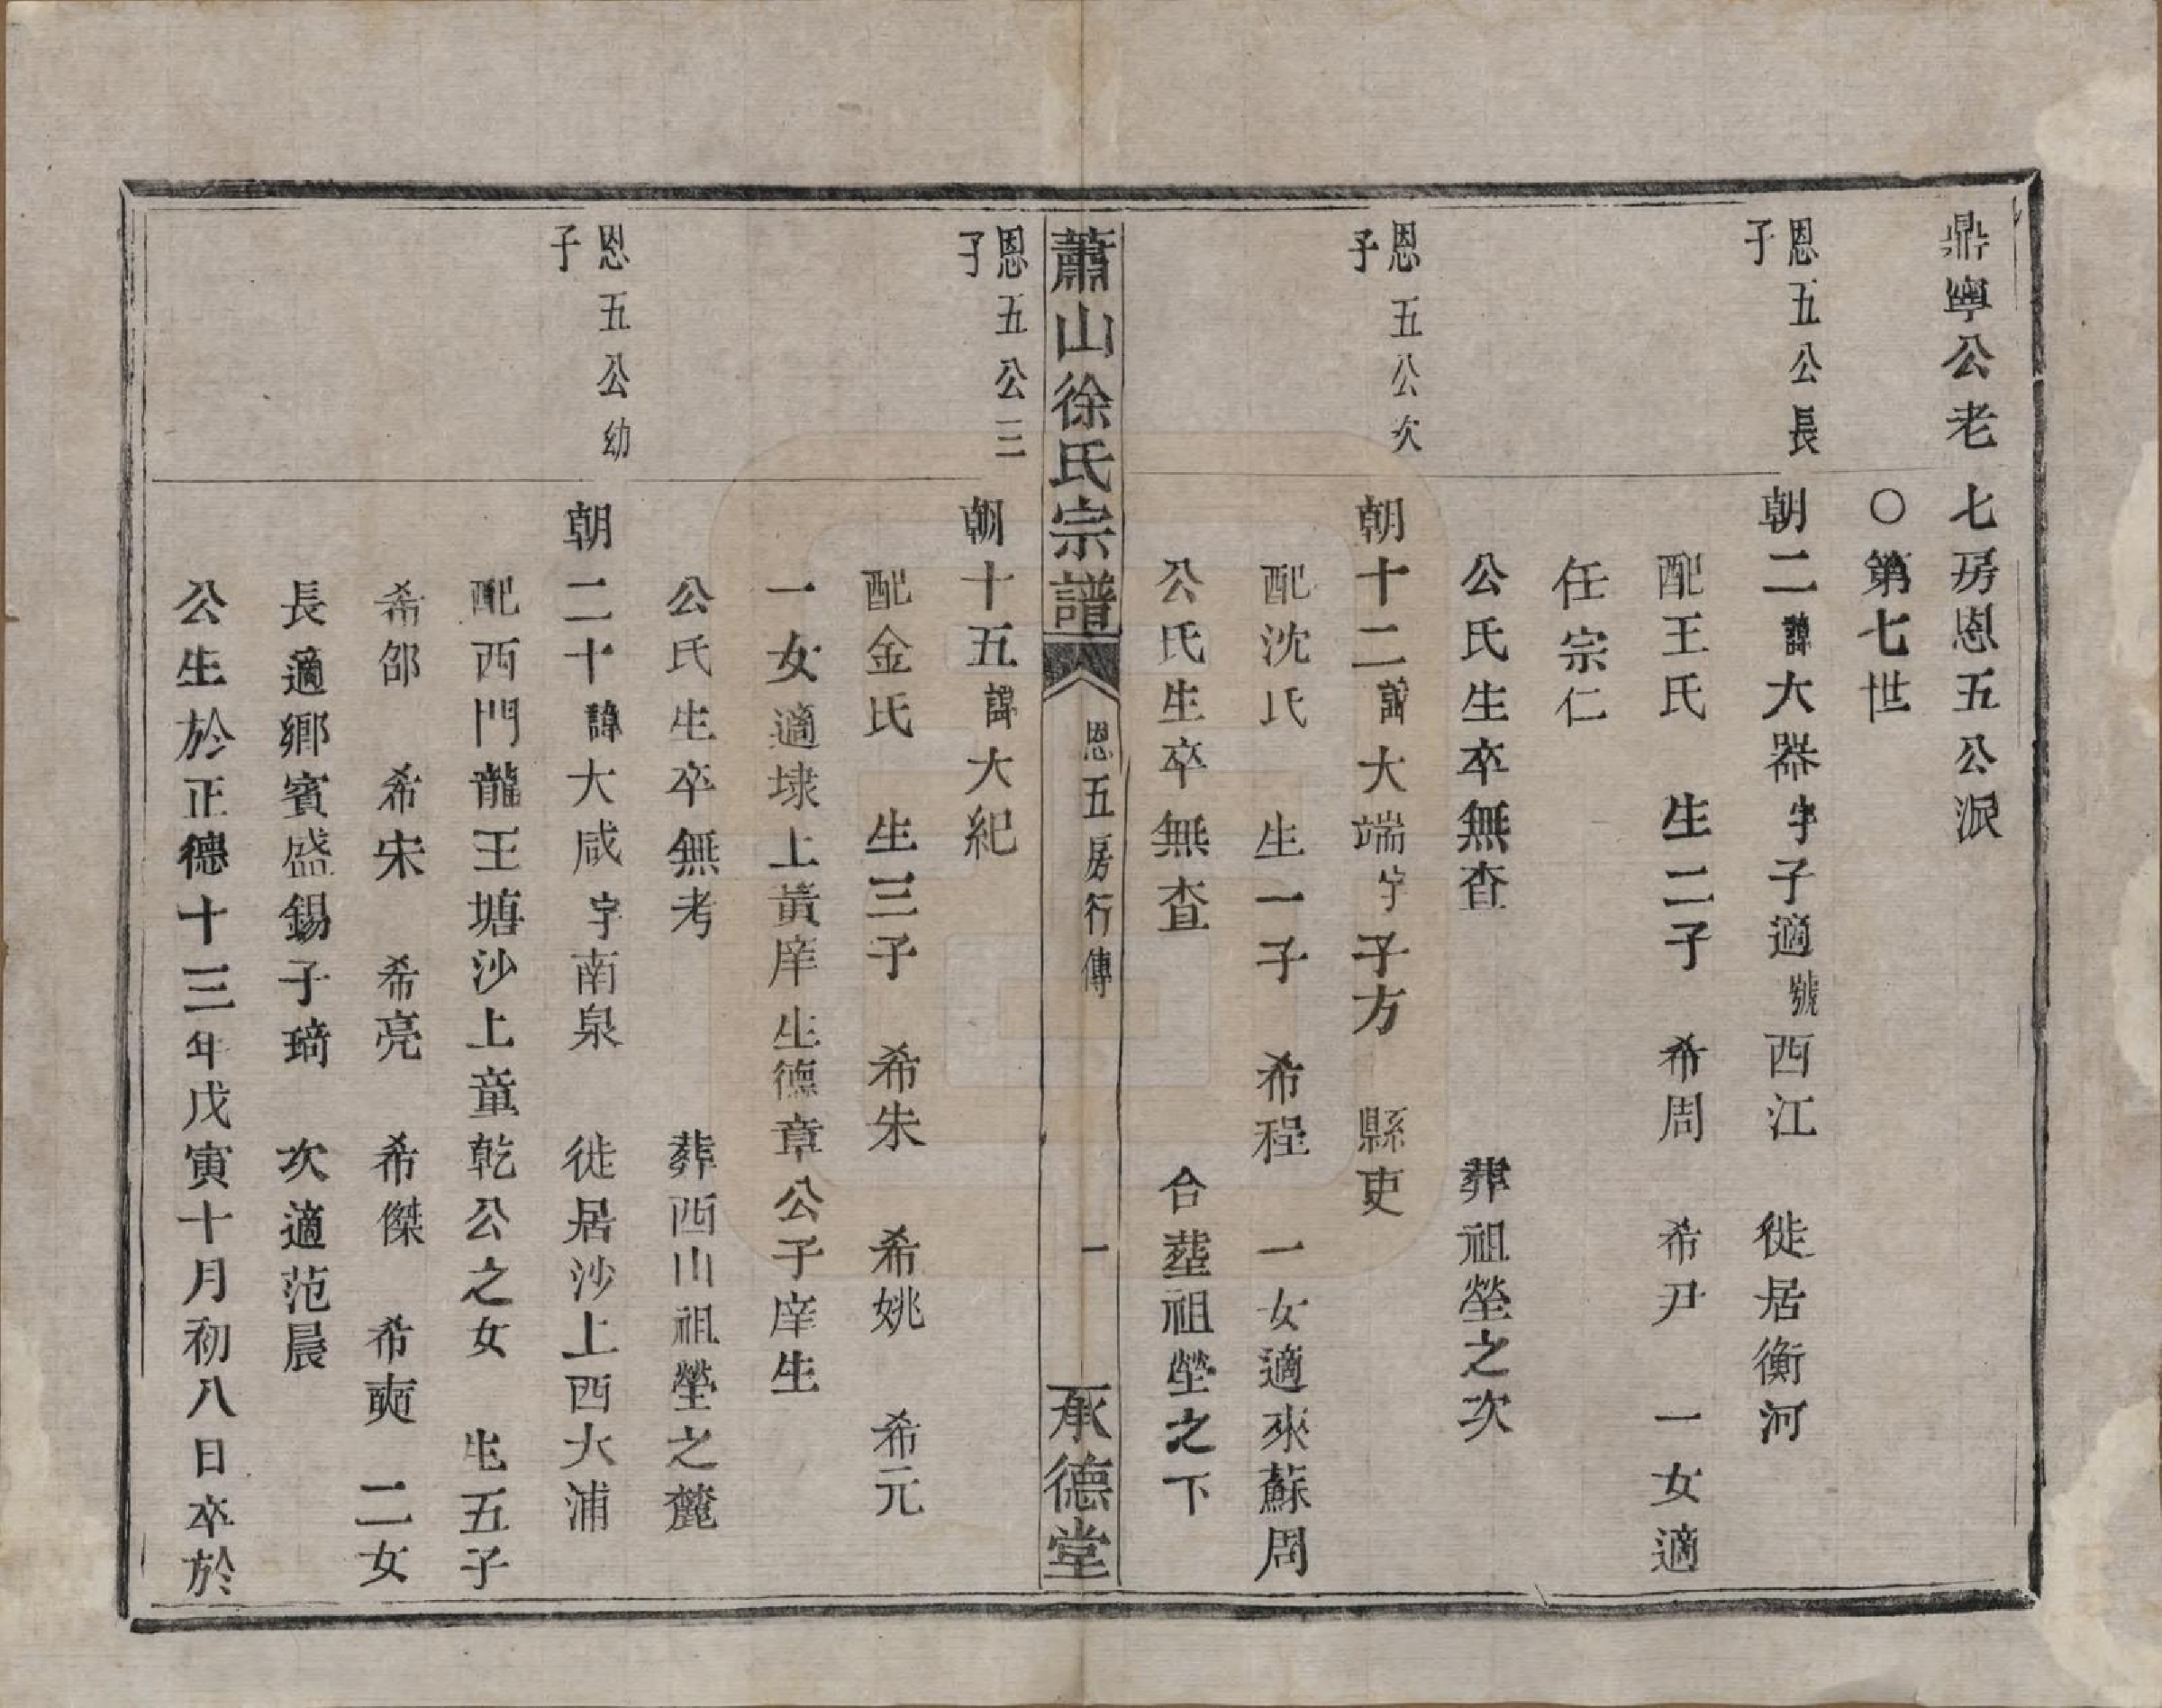 鼎寧公老七房恩五公派
○第七世
恩五公長子
朝二諱大器字子適號西江 徙居衡河
配王氏 生二子 希周 希尹 一女適
任宗仁
公氏生卒無查 葬祖塋之次
恩五公次子
朝十二諱大端字子方 縣吏
配沈氏 生一子 希程 一女適來蘇周
公氏生卒無查 合葬祖塋之下
蕭山徐氏宗譜 恩五房行傳 一 承德堂
恩五公三子
朝十五諱大紀
配金氏 生三子 希朱 希姚 希元
一女適埭上黃庠生德章公子庠生
公氏生卒無考 葬西山祖塋之麓
恩五公幼子
朝二十諱大咸字南泉 徙居沙上西大浦
配西門龍王塘沙上童乾公之女 生五子
希邵 希宋 希亮 希傑 希奭 二女
長適鄉賓盛錫子琦 次適范晨
公生於正德十三年戊寅十月初八日卒於